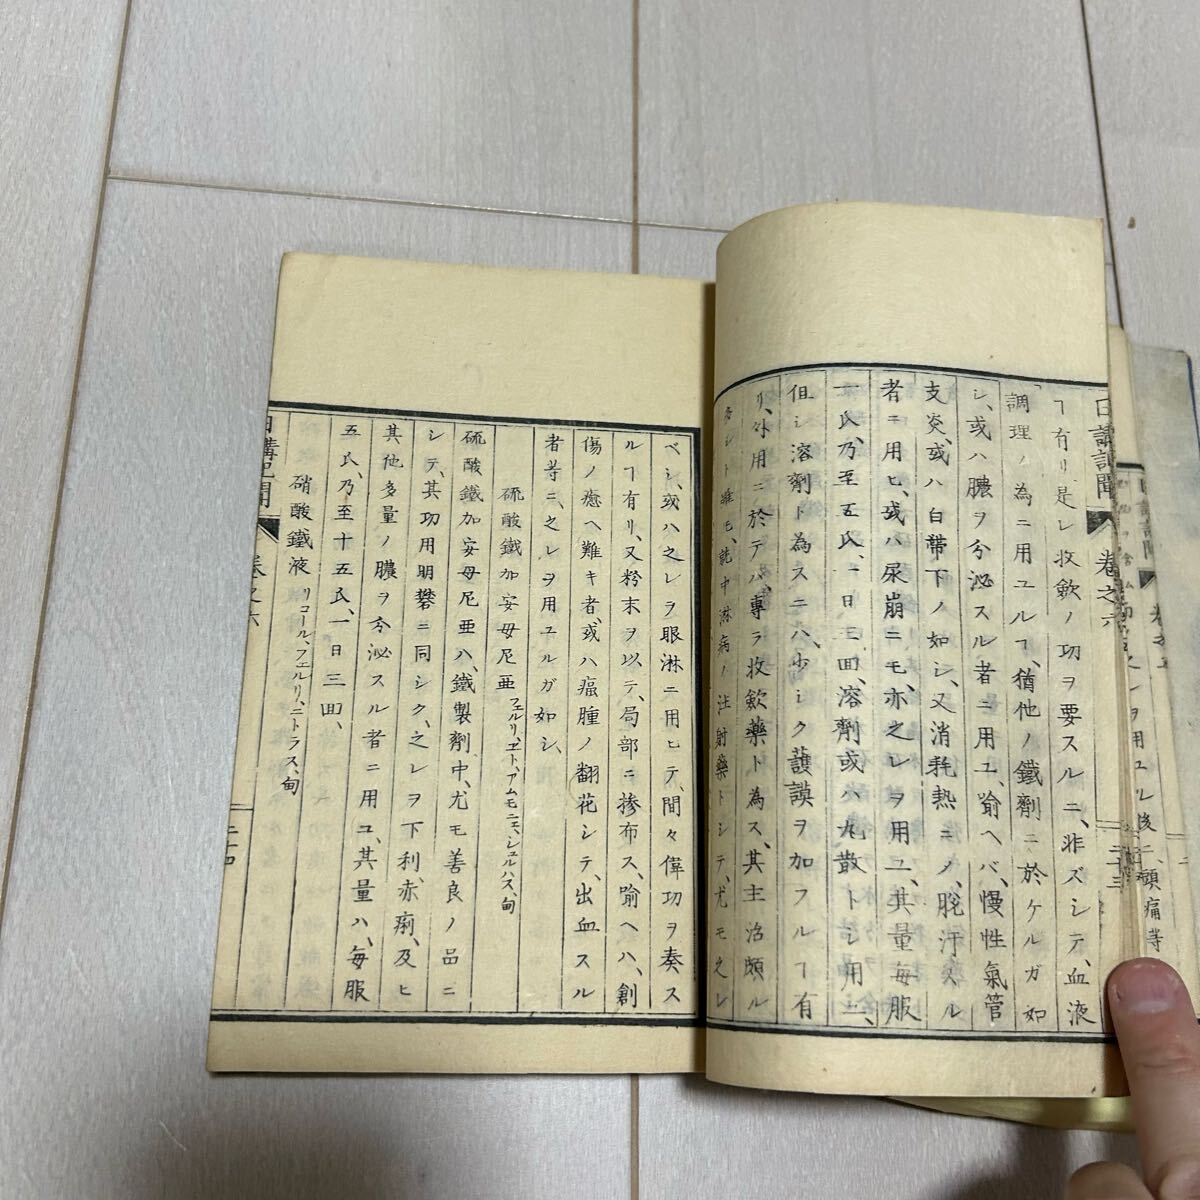 日講記聞 卷之六 二十三
ヿ有リ是レ收歛ノ功ヲ要スルニ、非ズシテ、血液
調理ノ為ニ用ユルヿ、猶他ノ鐵劑ニ於ケルガ如
シ、或ハ膿ヲ分泌スル者ニ用ユ、喻ヘバ、慢性氣管
支炎、或ハ白帶下ノ如シ、又消耗熱ニノ、脱汗スル
者ニ用ヒ、或ハ尿崩ニモ亦之レヲ用ユ、其量每服
一氏、乃至五氏、一日三回、溶劑或ハ丸散トシ用ユ、
但シ溶劑ト為スニハ、少シク護謨ヲ加フルヿ有
リ、外用ニ於テハ、專ラ收歛藥ト為ス、其主治頗ル
多シト雖モ、就中淋病ノ注射藥トシテ、尤モ之レ
ベシ、或ハ之レヲ眼淋ニ用ヒテ、間々偉功ヲ奏ス
ルヿ有リ、又粉末ヲ以テ、局部ニ摻布ス、喻ヘハ、創
傷ノ癒ヘ難キ者、或ハ瘟腫ノ翻花シテ、出血スル
者等ニ、之レヲ用ユルガ如シ、
硫酸鐵加安母尼亜 フェルリ、エト、アムモニエ、シュルハス、甸
硫酸鐵加安母尼亜ハ、鐵製劑中、尤モ善良ノ品ニ
シテ、其功用明礬ニ同シク、之レヲ下利赤痢、及ヒ
其他多量ノ膿ヲ分泌スル者ニ用ユ、其量ハ、每服
五氏、乃至十五氏、一日三回、
硝酸鐵液 リコール、フェルリ、ニトラス、甸
日講記聞 卷之六 二十四